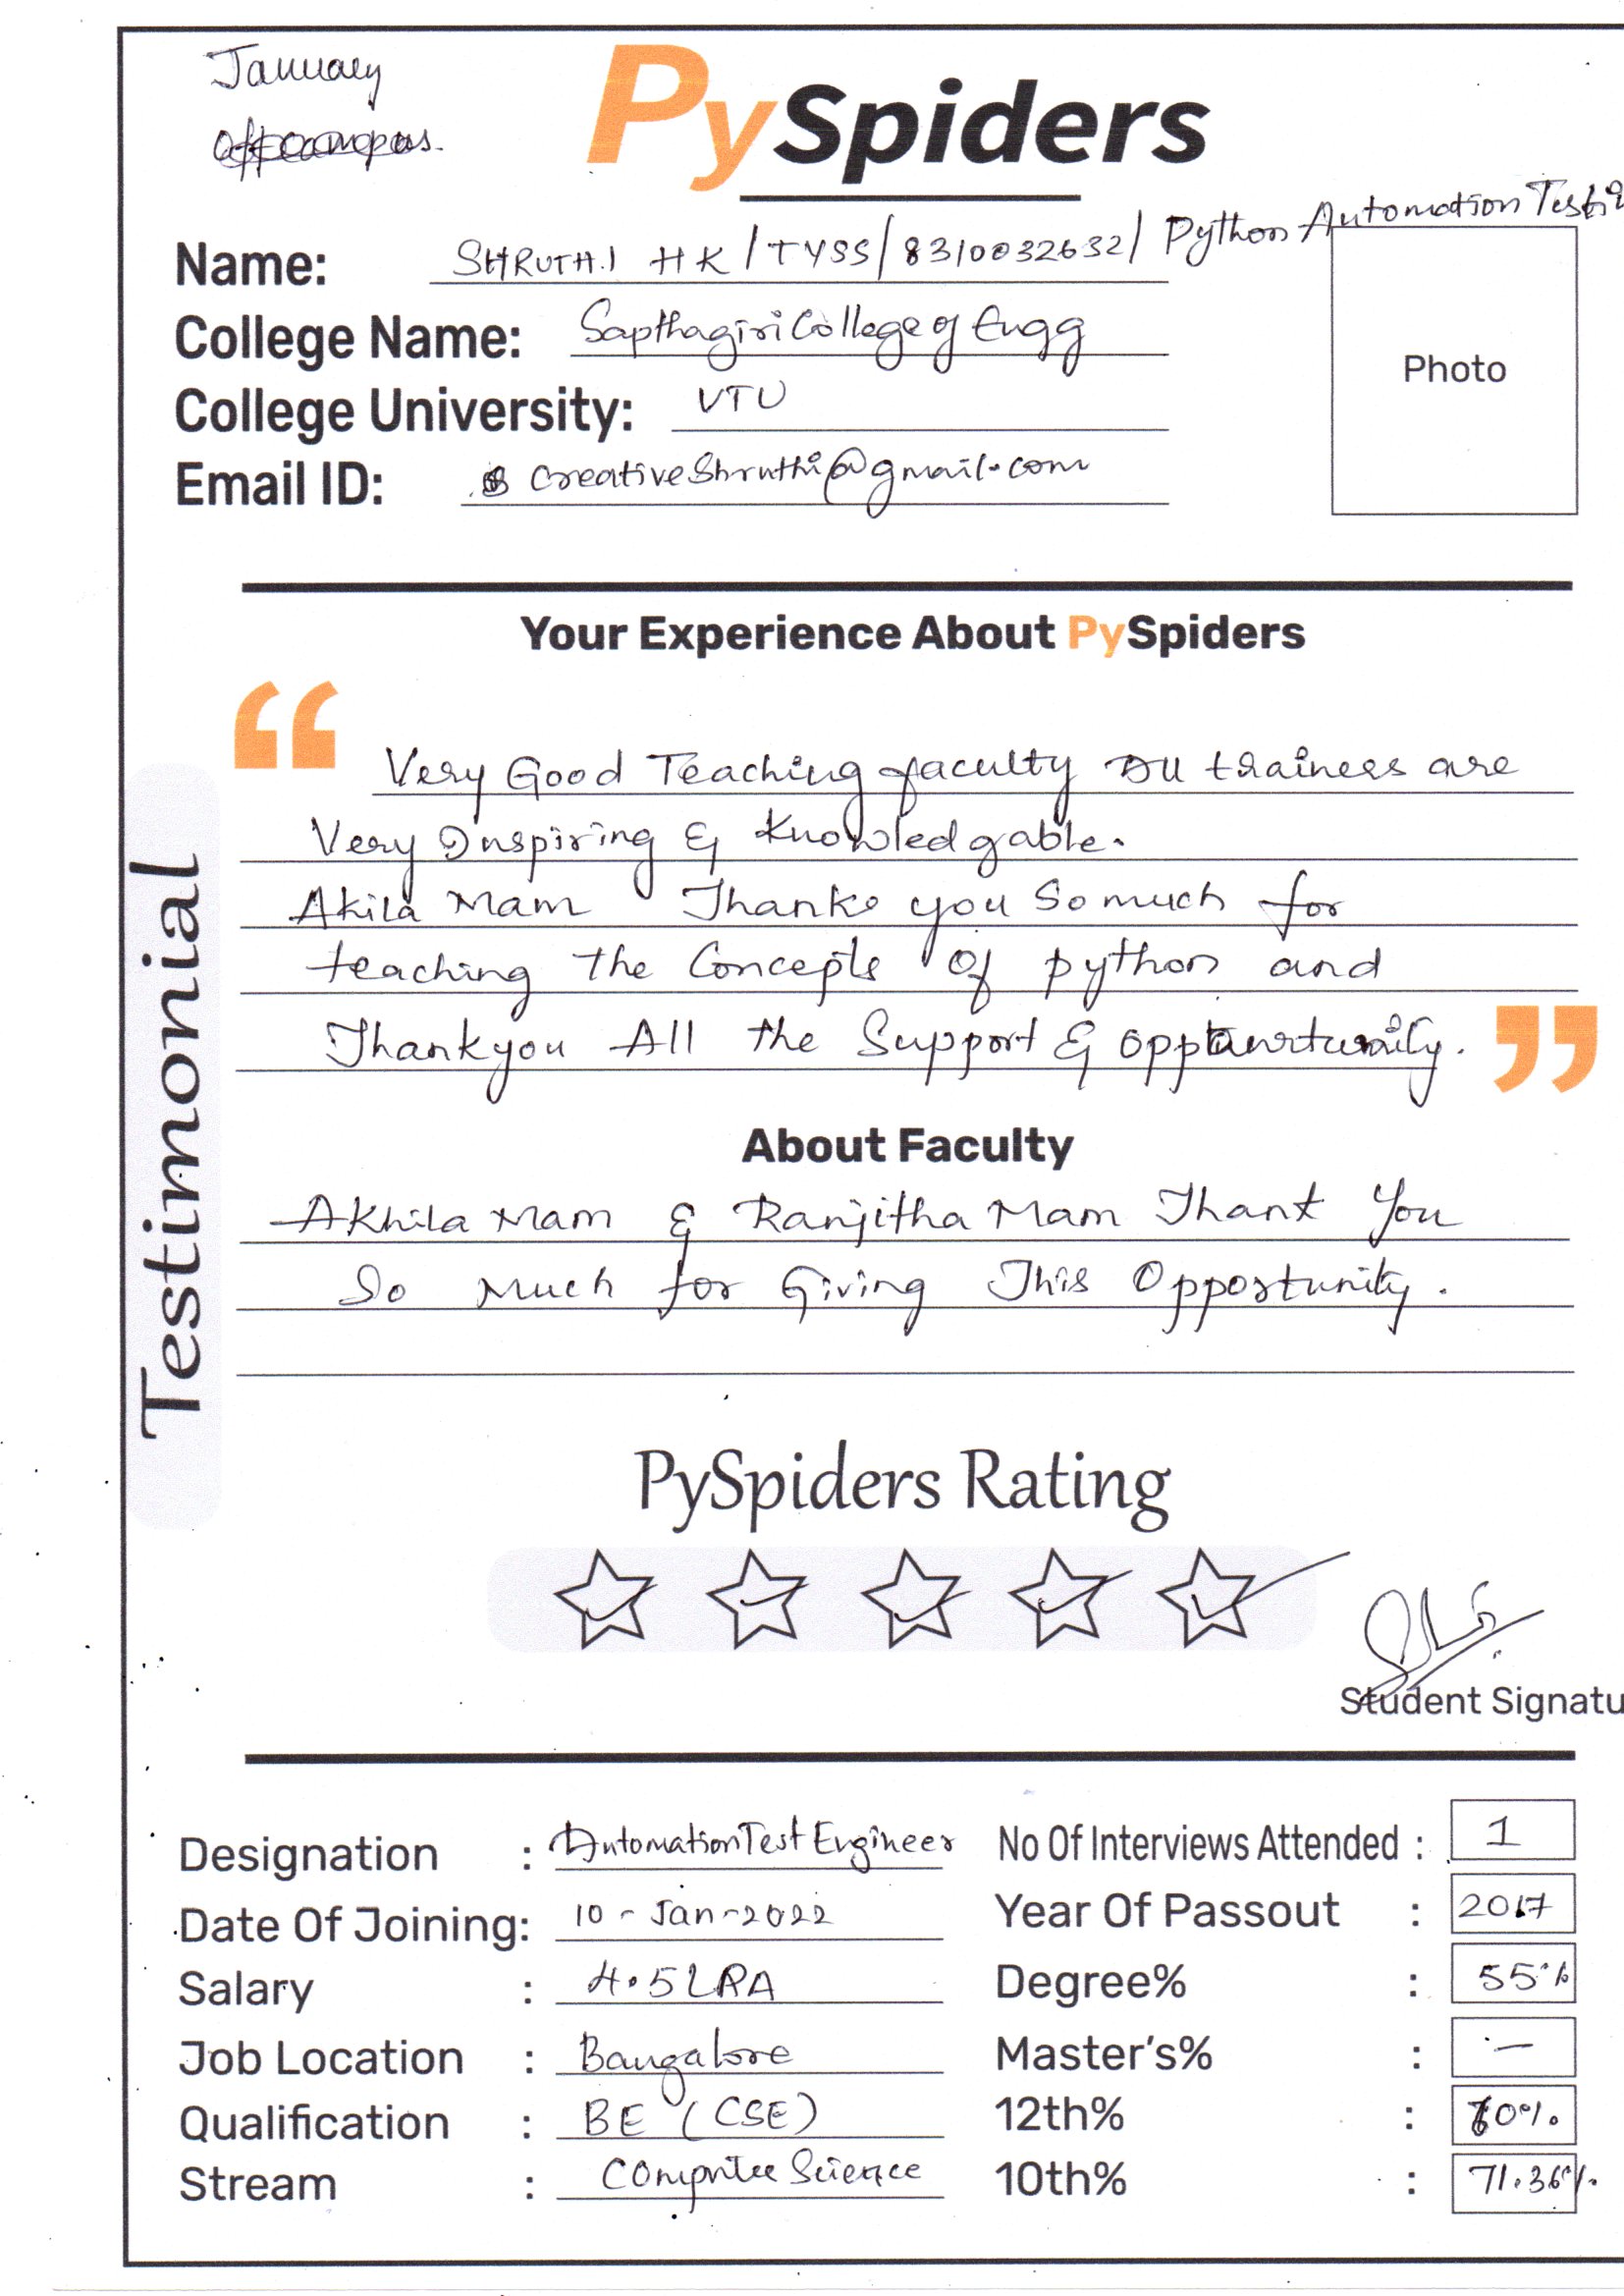 January
offcampus.
PySpiders
Name: SHRUTHI HK / TYSS / 8310032632 / Python Automation Testi
College Name: Sapthagiri College of Engg
College University: VTU
Email ID: creativeShruthi@gmail.com
Photo
Your Experience About PySpiders
“
Very Good Teaching faculty All trainess are
Very Inspiring & Knowledgable.
Akila Mam Thanks you So much for
teaching the Concepts of python and
Thankyou All the Support & oppturtunity.
”
Testimonial
About Faculty
Akhila Mam & Ranjitha Mam Thank You
So Much for Giving This Opportunity.
PySpiders Rating
Student Signatu
Designation : Automation Test Engineer
No Of Interviews Attended : 1
Date Of Joining: 10-Jan-2022
Year Of Passout : 2017
Salary : 4.5 LPA
Degree% : 55%
Job Location : Bangalore
Master's% : —
Qualification : BE (CSE)
12th% : 60%
Stream : Computer Science
10th% : 71.36%